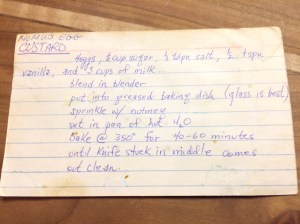 MOMUS EGG
CUSTARD
4 eggs, ½ cup sugar, ½ tspn salt, ½ tspn.
vanilla, and 3 cups of milk.
blend in blender
put into greased baking dish (glass is best)
sprinkle w/ nutmeg
set in pan of hot H2O
bake @ 350° for 40-60 minutes
until knife stuck in middle comes
out clean.